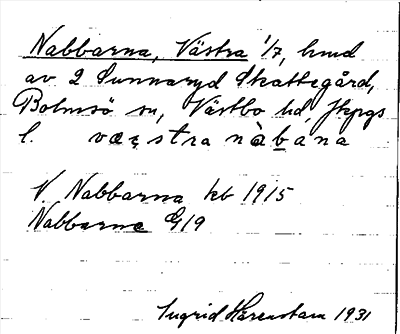 Nabbarna, Västra 1/7, hmd
av 2 Sunnaryd Skattegård,
Bolmsö sn, Västbo hd, Jkpgs
l. væstra nàbana
V. Nabbarna kb 1915
Nabbarna G19
Ingrid Härenstam 1931